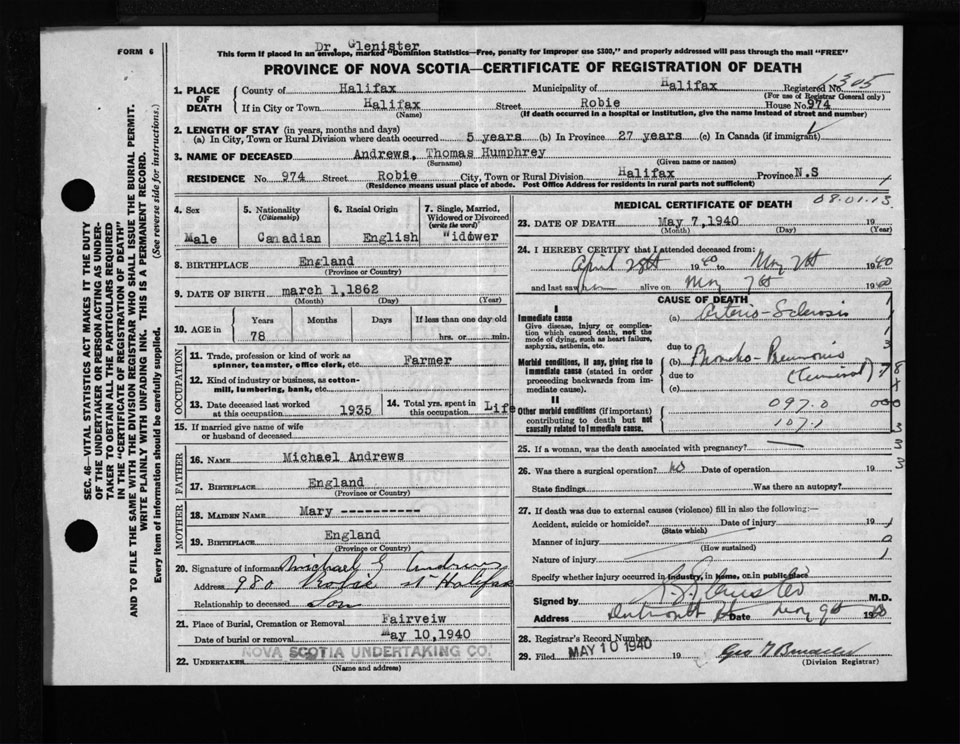 FORM 6
Dr. Glenister
This form if placed in an envelope, marked "Dominion Statistics—Free, penalty for improper use $300," and properly addressed will pass through the mail "FREE"
PROVINCE OF NOVA SCOTIA—CERTIFICATE OF REGISTRATION OF DEATH
1. PLACE OF DEATH
County of Halifax Municipality of Halifax Registered No. 1305
(For use of Registrar General only)
If in City or Town Halifax Street Robie House No. 974
(Name) (If death occurred in a hospital or institution, give the name instead of street and number)
2. LENGTH OF STAY (in years, months and days)
(a) In City, Town or Rural Division where death occurred 5 years (b) In Province 27 years (c) In Canada (if immigrant)
3. NAME OF DECEASED Andrews, Thomas Humphrey
(Surname) (Given name or names)
RESIDENCE No. 974 Street Robie City, Town or Rural Division Halifax Province N.S
(Residence means usual place of abode. Post Office Address for residents in rural parts not sufficient)
4. Sex 5. Nationality (Citizenship) 6. Racial Origin 7. Single, Married, Widowed or Divorced (write the word)
Male Canadian English "idower
8. BIRTHPLACE England
(Province or Country)
9. DATE OF BIRTH march 1,1862
(Month) (Day) (Year)
10. AGE in Years Months Days If less than one day old
78 hrs. or min.
OCCUPATION
11. Trade, profession or kind of work as spinner, teamster, office clerk, etc. Farmer
12. Kind of industry or business, as cotton-mill, lumbering, bank, etc.
13. Date deceased last worked at this occupation 1935 14. Total yrs. spent in this occupation Life
15. If married give name of wife or husband of deceased
FATHER
16. NAME Michael Andrews
17. BIRTHPLACE England
(Province or Country)
MOTHER
18. MAIDEN NAME Mary -----------
19. BIRTHPLACE England
(Province or Country)
20. Signature of informant Michael G Andrews
Address 980 Robie st Halifax
Relationship to deceased Son
21. Place of Burial, Cremation or Removal Fairveiw
Date of burial or removal May 10,1940
22. UNDERTAKER NOVA SCOTIA UNDERTAKING CO.
(Name and address)
MEDICAL CERTIFICATE OF DEATH 08.01.13
23. DATE OF DEATH May 7,1940 19
(Month) (Day) (Year)
24. I HEREBY CERTIFY that I attended deceased from:
April 28th 1940 to May 7th 1940
and last saw him alive on May 7th 1940
CAUSE OF DEATH
I
Immediate cause (a) Arterio-Sclerosis
Give disease, injury or complication which caused death, not the mode of dying, such as heart failure, asphyxia, asthenia, etc.
due to
Morbid conditions, if any, giving rise to immediate cause (stated in order proceeding backwards from immediate cause).
(b) Broncho-Pneumonia
due to (Terminal)
(c)
II
Other morbid conditions (if important) contributing to death but not causally related to immediate cause.
097.0
107.1
25. If a woman, was the death associated with pregnancy?
26. Was there a surgical operation? no Date of operation 19
State findings Was there an autopsy?
27. If death was due to external causes (violence) fill in also the following:—
Accident, suicide or homicide? Date of injury 19
(State which)
Manner of injury
(How sustained)
Nature of injury
Specify whether injury occurred in industry, in home, or in public place
Signed by Glenister M.D.
Address Date May 9th 1940
28. Registrar's Record Number
29. Filed MAY 10 1940 19
(Division Registrar)
SEC. 46—VITAL STATISTICS ACT MAKES IT THE DUTY
OF THE UNDERTAKER OR PERSON ACTING AS UNDER-
TAKER TO OBTAIN ALL THE PARTICULARS REQUIRED
IN THE "CERTIFICATE OF REGISTRATION OF DEATH"
AND TO FILE THE SAME WITH THE DIVISION REGISTRAR WHO SHALL ISSUE THE BURIAL PERMIT.
WRITE PLAINLY WITH UNFADING INK. THIS IS A PERMANENT RECORD.
Every item of information should be carefully supplied. (See reverse side for instructions.)